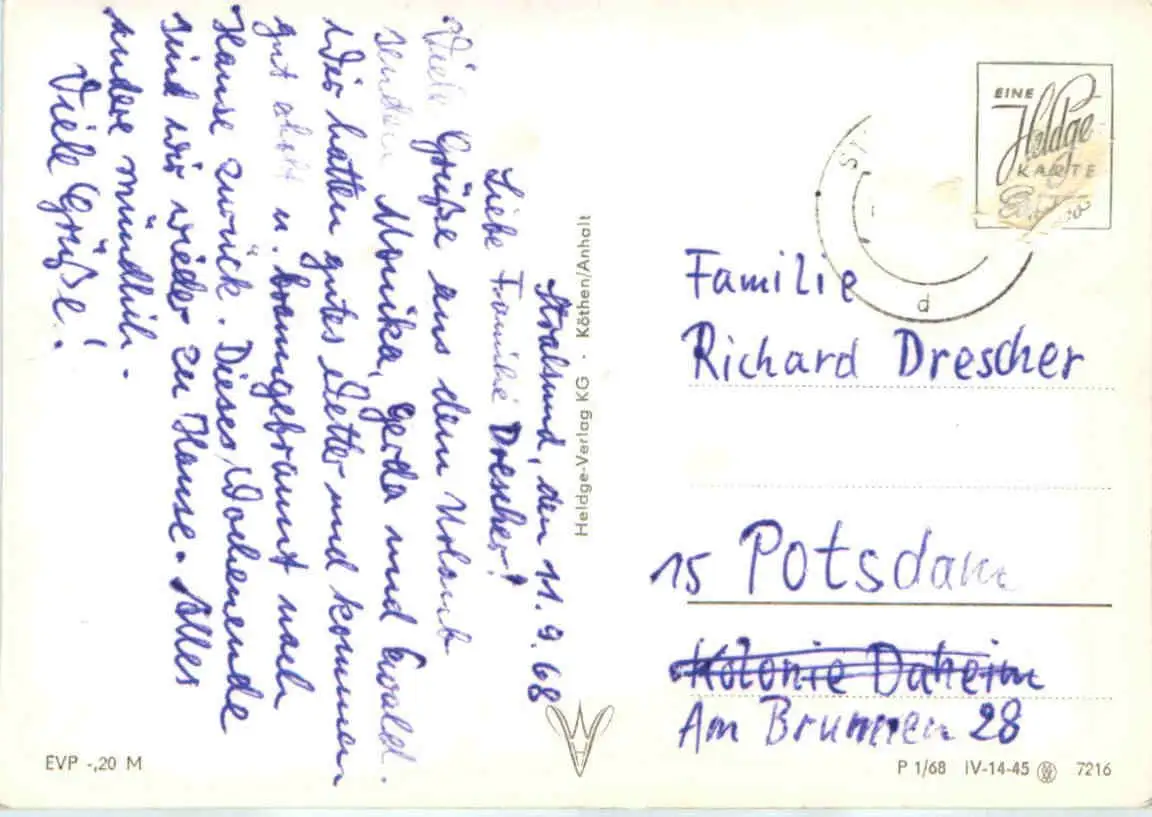 Stralsund, den 11.9.68
Liebe Familie Drescher!
Viele Grüße aus dem Urlaub
senden Monika, Gerda und Ewald.
Wir hatten gutes Wetter und kommen
gut u. braungebrannt nach
Hause zurück. Dieses Wochenende
sind wir wieder zu Hause. Alles
andere mündlich.
Viele Grüße!
EVP -,20 M
Heldge-Verlag KG · Köthen/Anhalt
EINE
Heldge
KARTE
d
Familie
Richard Drescher
15 Potsdam
Kolonie Daheim
Am Brunnen 28
P 1/68 IV-14-45 7216